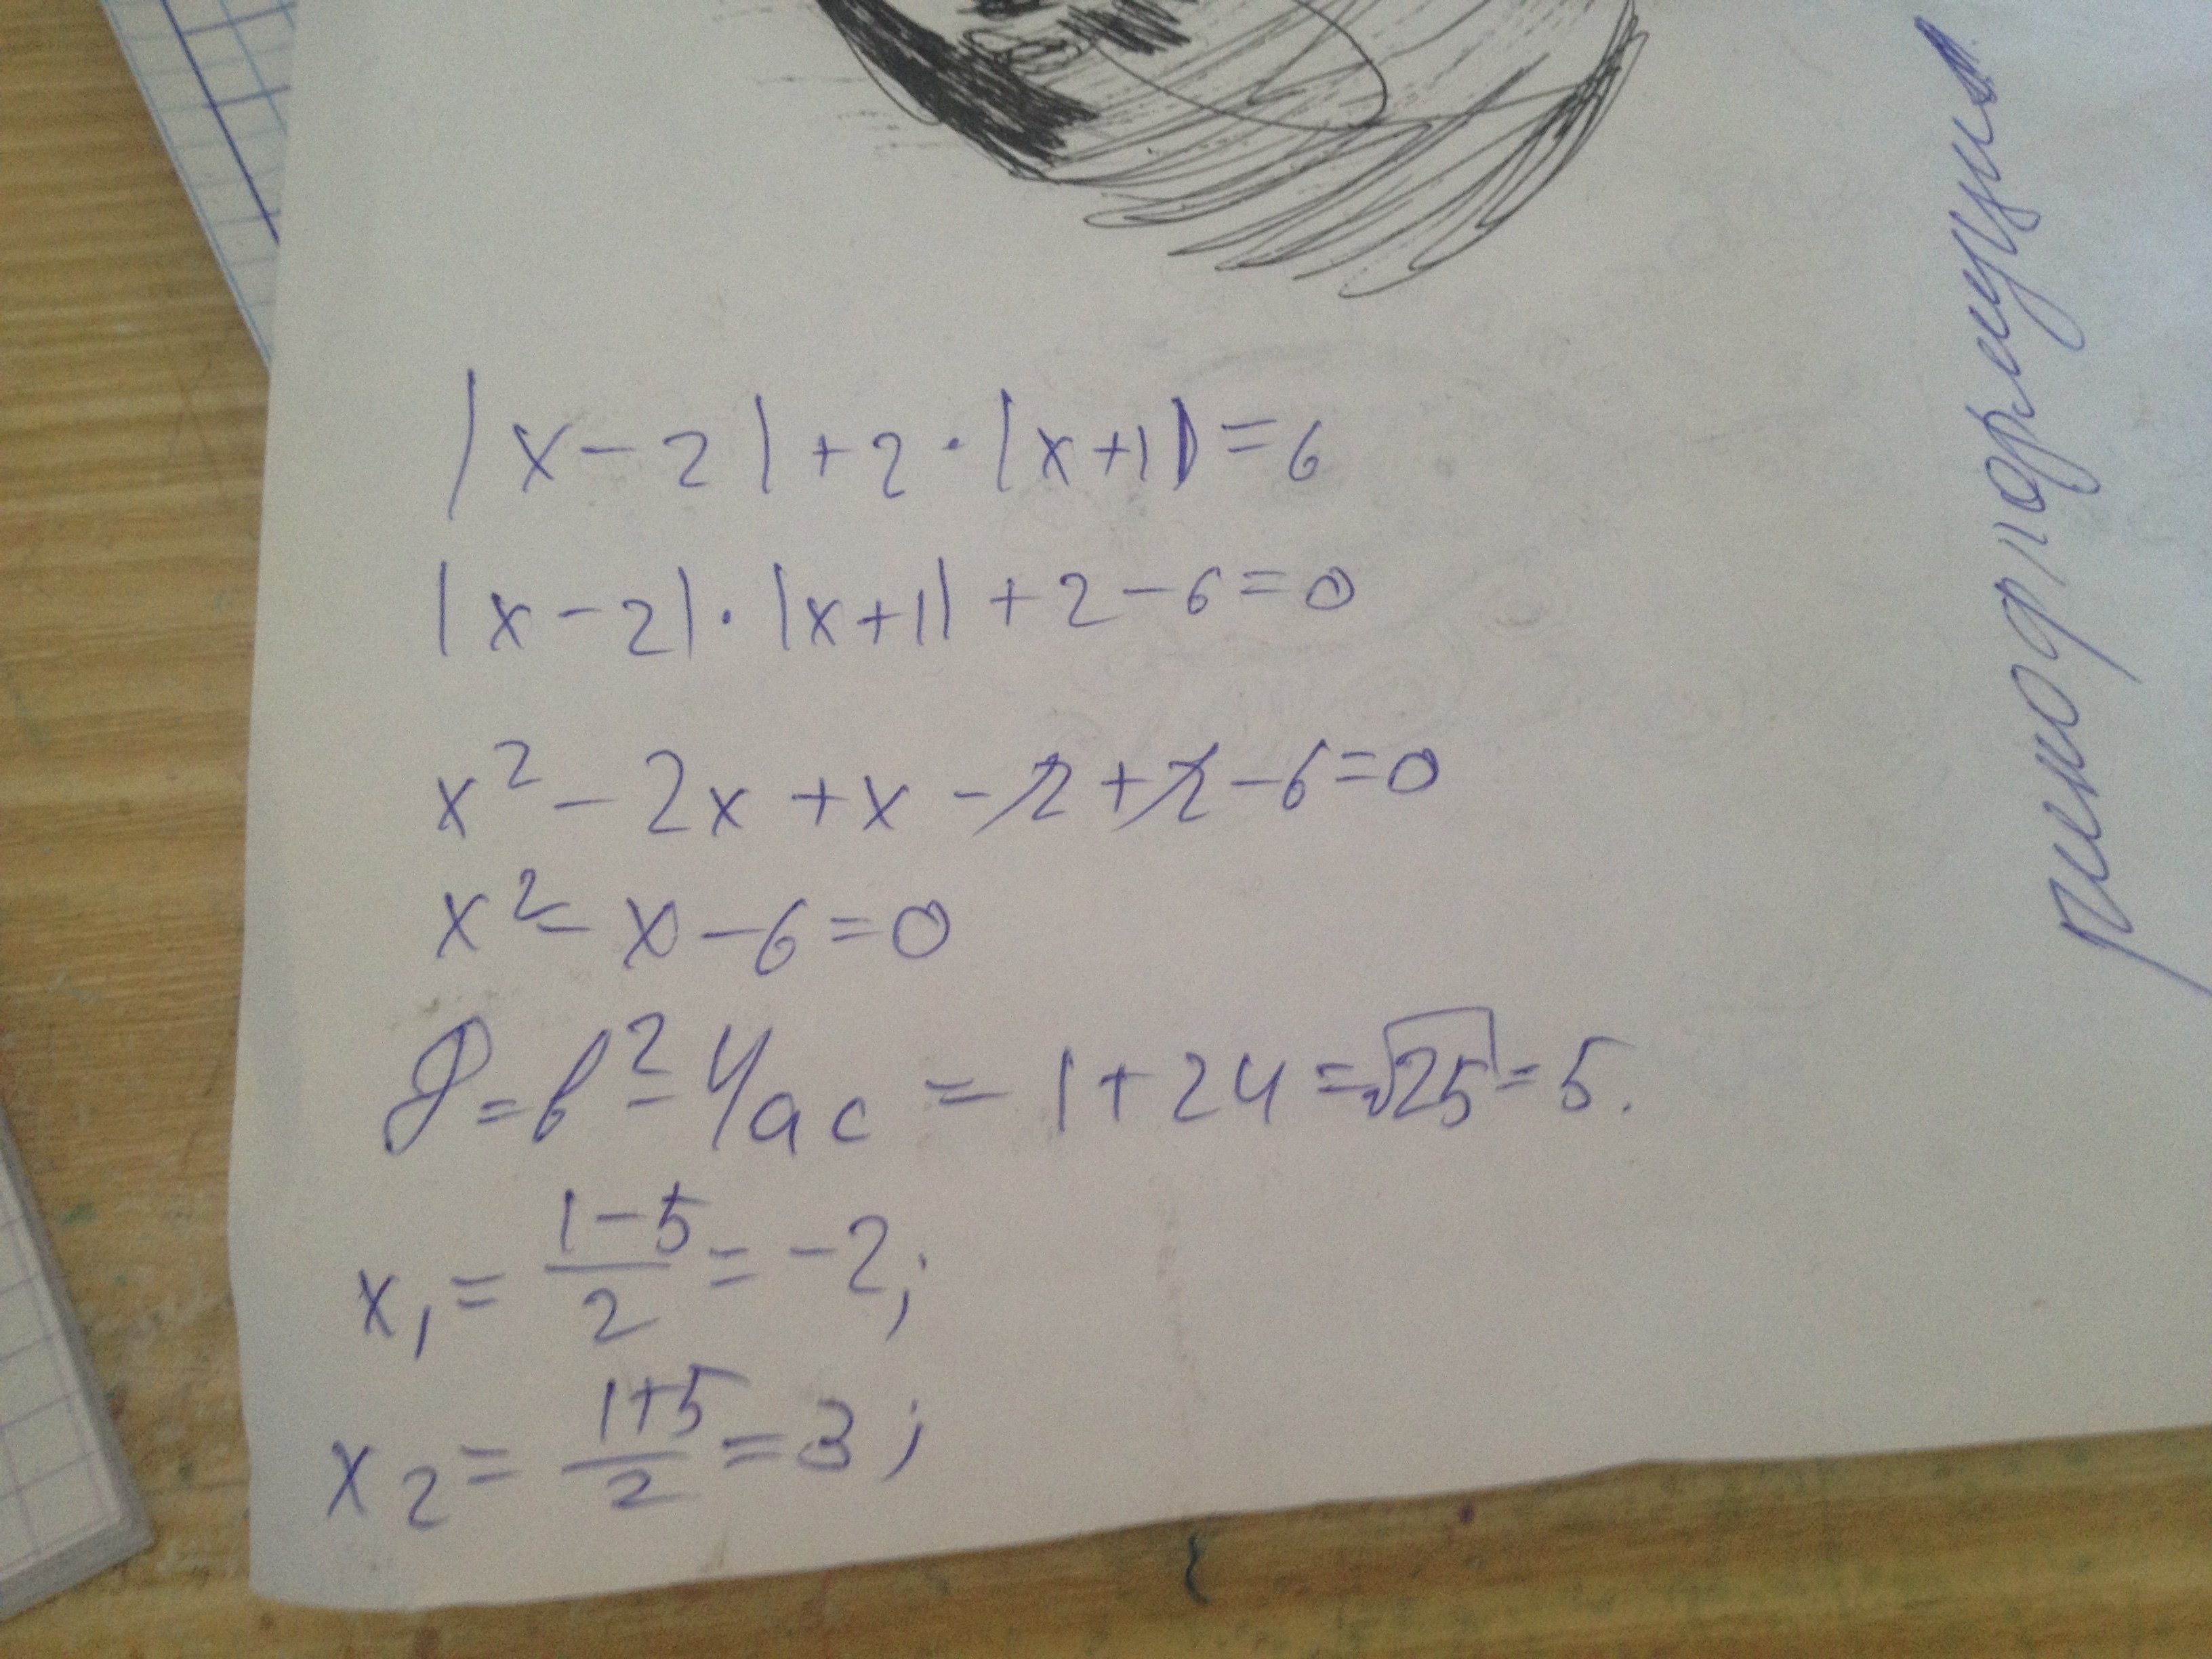 |x-2|+2·|x+1|=6
|x-2|·|x+1|+2-6=0
x²-2x+x-2+2-6=0
x²-x-6=0
D=b²-4ac=1+24=√25=5.
x₁=\frac{1-5}{2}=-2;
x₂=\frac{1+5}{2}=3;